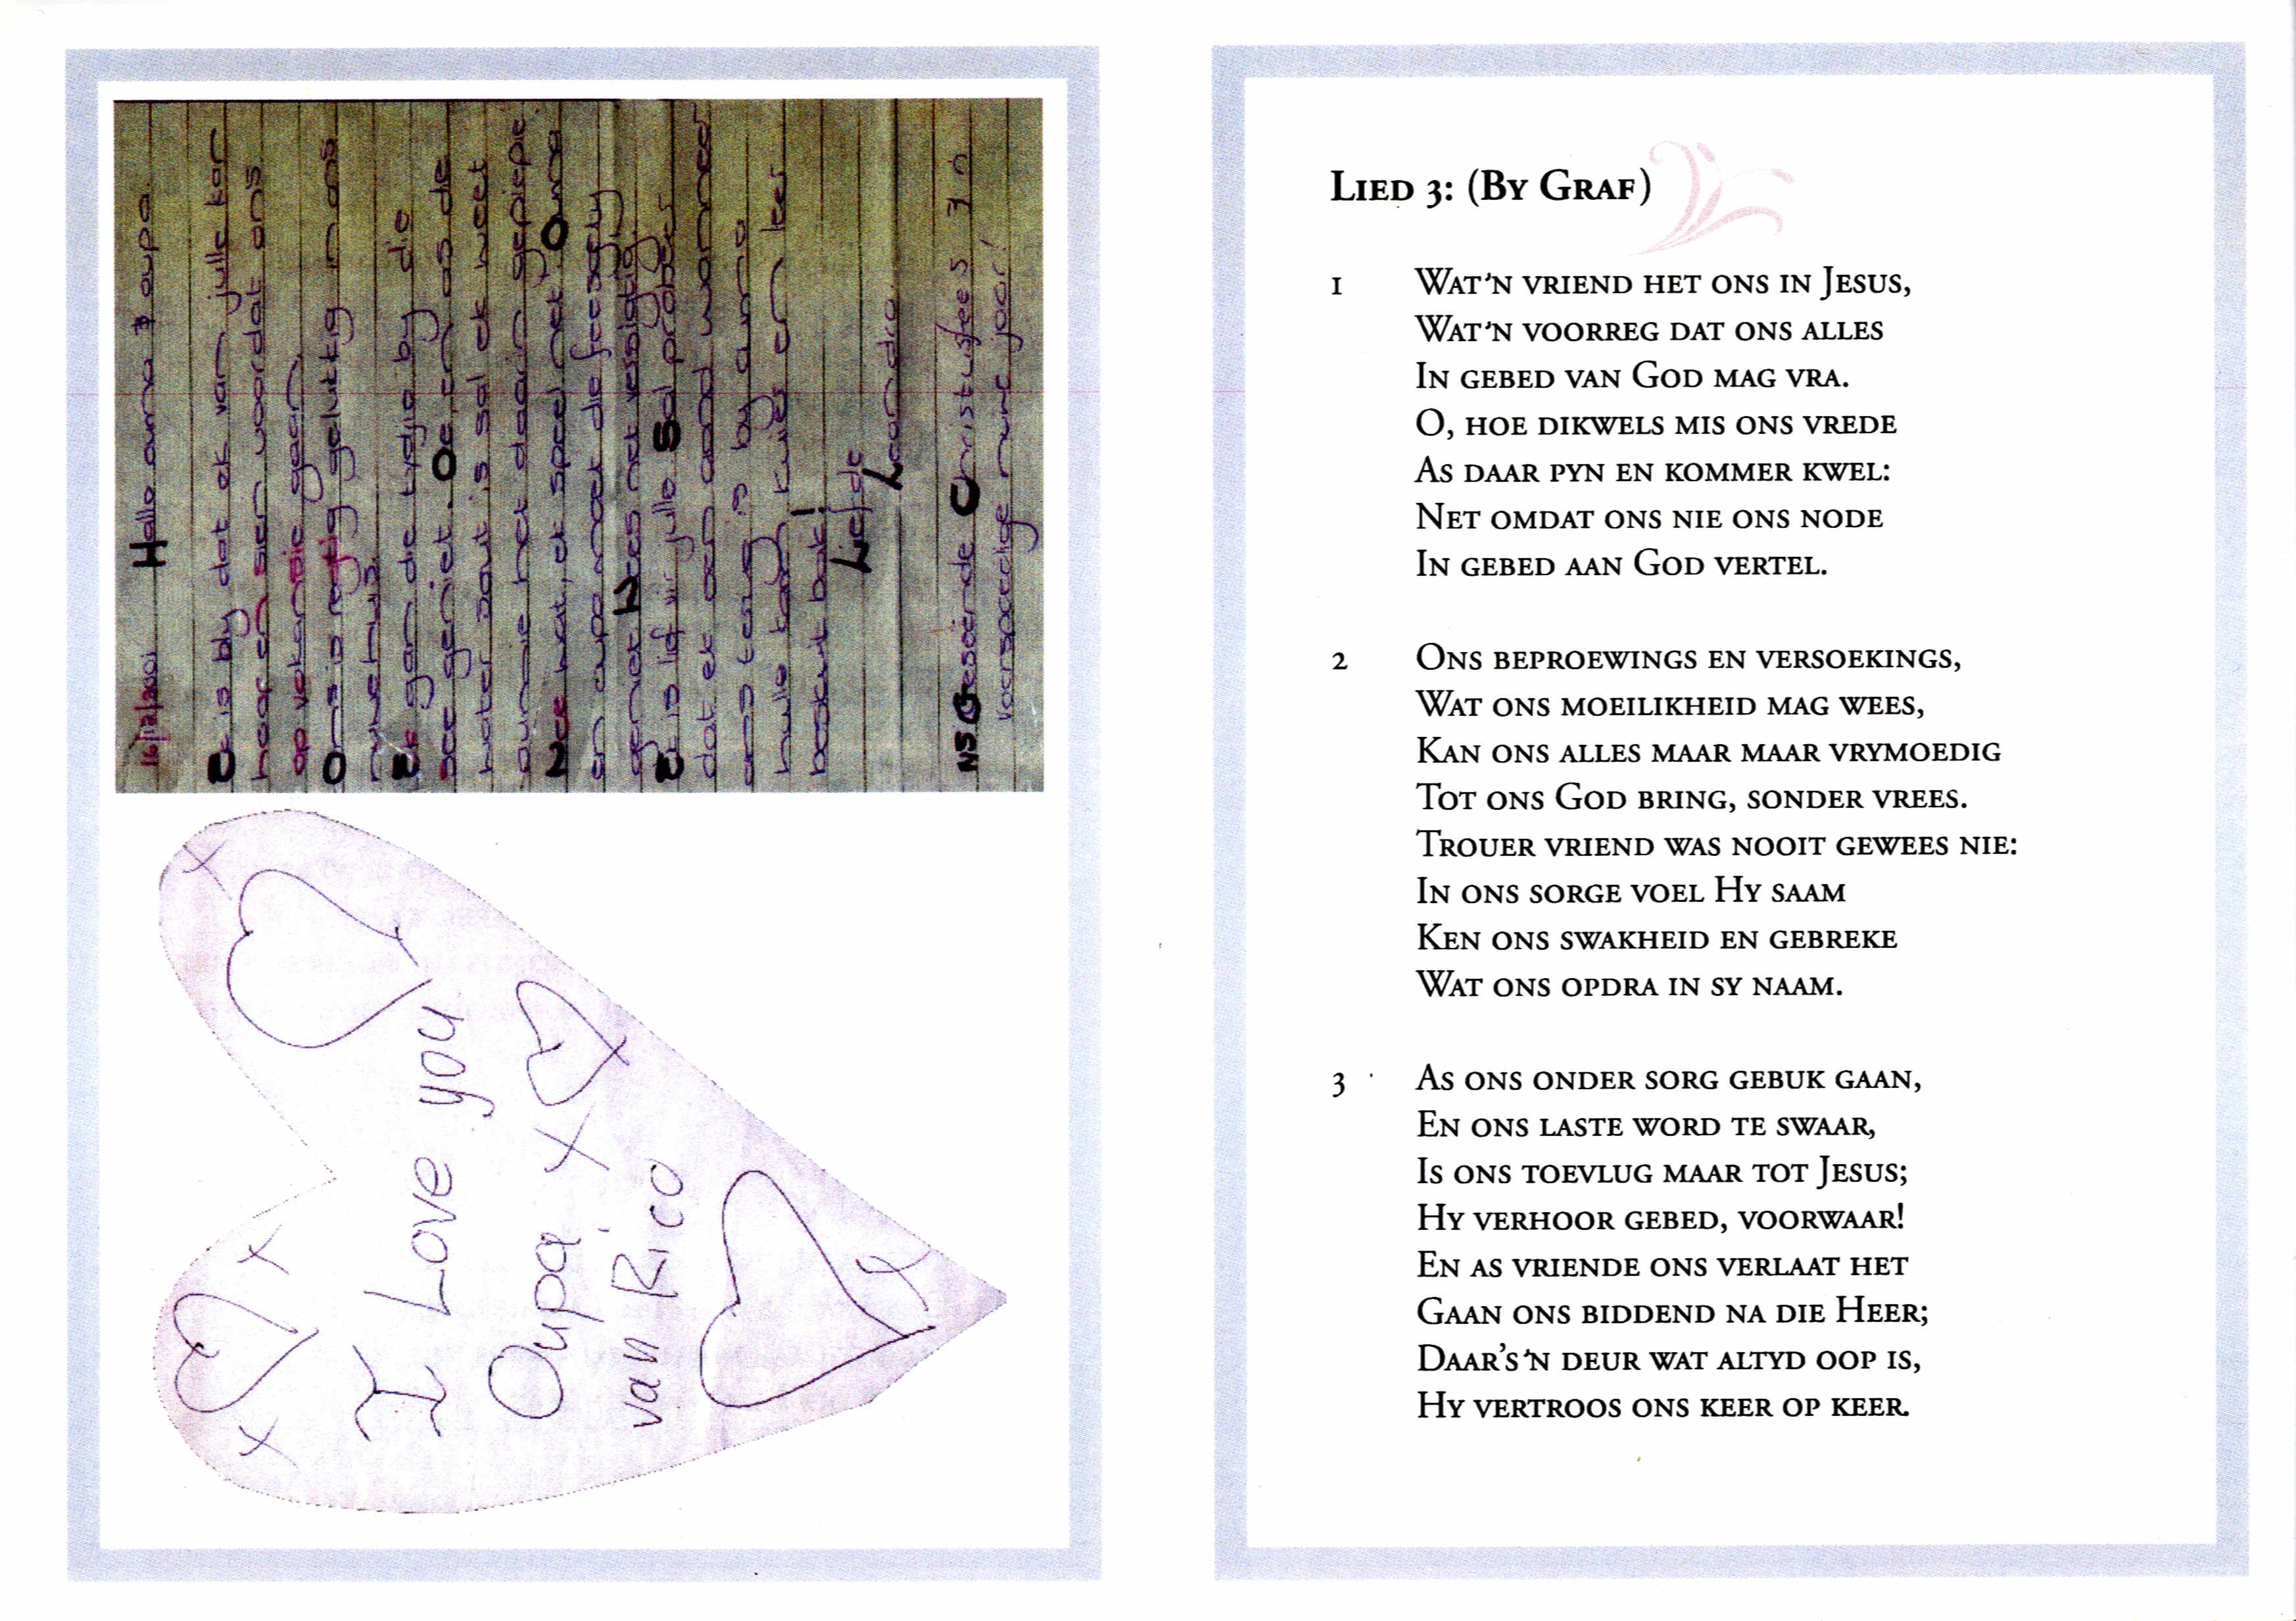 16/12/2001
Hallo ouma & oupa
Ek is bly dat ek van julle kan
hoor en sien voordat ons
op vakansie gaan.
Ons is regtig gelukkig in ons
nuwe huis.
Ek gaan die tydjie by die
see geniet. Oe, en as die
water sout is sal ek weet
oumie het daarin gepiepie.
Nee wat, ek speel net. Ouma
en oupa moet die feesgety
geniet. Wees net versigtig.
Ek is lief vir julle. Sal probeer
dat ek een aand wanneer
ons terug is by ouma
hulle kan kuier en leer
beskuit bak!
Liefde
Leandra
NS Geseënde Christusfees & 'n
voorspoedige nuwe jaar!
I Love you
Oupa x
van Rico
Lied 3: (By Graf)
1 Wat'n vriend het ons in Jesus,
Wat'n voorreg dat ons alles
In gebed van God mag vra.
O, hoe dikwels mis ons vrede
As daar pyn en kommer kwel:
Net omdat ons nie ons node
In gebed aan God vertel.
2 Ons beproewings en versoekings,
Wat ons moeilikheid mag wees,
Kan ons alles maar maar vrymoedig
Tot ons God bring, sonder vrees.
Trouer vriend was nooit gewees nie:
In ons sorge voel Hy saam
Ken ons swakheid en gebreke
Wat ons opdra in sy naam.
3 As ons onder sorg gebuk gaan,
En ons laste word te swaar,
Is ons toevlug maar tot Jesus;
Hy verhoor gebed, voorwaar!
En as vriende ons verlaat het
Gaan ons biddend na die Heer;
Daar's 'n deur wat altyd oop is,
Hy vertroos ons keer op keer.